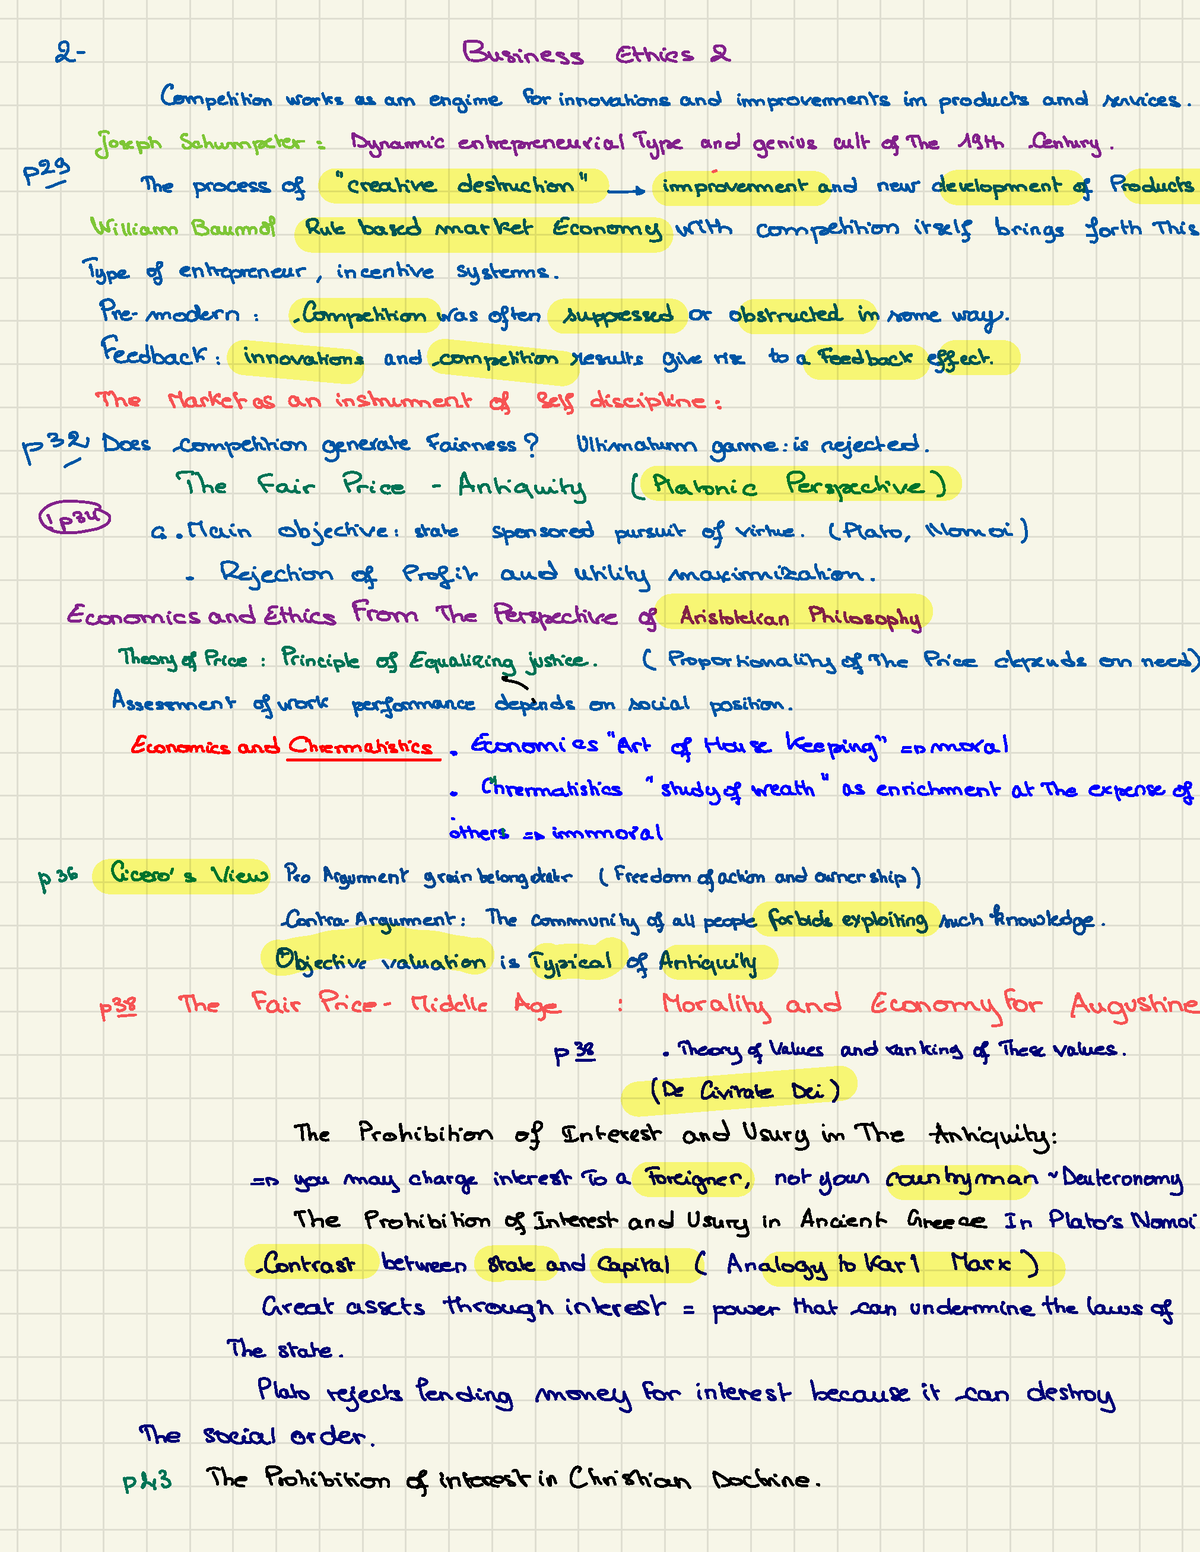 2- Business Ethics 2
Competition works as am engime for innovations and improvements im products amd services.
Joseph Schumpeter: Dynamic entrepreneurial Type and genius cult of The 19th Century.
p29 The process of "creative destruction" → improvement and new development of Products
William Baumol Rule based market Economy with competition itself brings forth This
Type of entrepreneur, incentive systems.
Pre-modern: Competition was often suppressed or obstructed in some way.
Feedback: innovations and competition results give rise to a Feedback effect.
The Market as an instrument of Self discipline:
p32 Does competition generate Fairness? Ultimatum game: is rejected.
The Fair Price - Antiquity (Platonic Perspective)
!p34 a. Main objective: state sponsored pursuit of virtue. (Plato, Nomoi)
- Rejection of Profit and utility maximization.
Economics and Ethics From The Perspective of Aristotelian Philosophy
Theory of Price: Principle of Equalizing justice. (Proportionality of The Price depends on need)
Assessment of work performance depends on social position.
Economics and Chrematistics . Economies "Art of House Keeping" => moral
. Chrematistics "study of weath" as enrichment at The expense of
others => immoral
p36 Cicero's View Pro Argument grain (Freedom of action and owner ship)
Contra-Argument: The community of all people forbids exploiting such knowledge.
Objective valuation is Typical of Antiquity
p38 The Fair Price - Middle Age : Morality and Economy for Augustine
p38 . Theory of Values and ranking of These values.
(De Civitate Dei)
The Prohibition of Interest and Usury in The Antiquity:
=> you may charge interest To a Foreigner, not your countryman ~Deuteronomy
The Prohibition of Interest and Usury in Ancient Greece In Plato's Nomoi
Contrast between state and Capital (Analogy to Karl Marx)
Great assets through interest = power that can undermine the laws of
The state.
Plato rejects lending money for interest because it can destroy
The social order.
p43 The Prohibition of interest in Christian Doctrine.